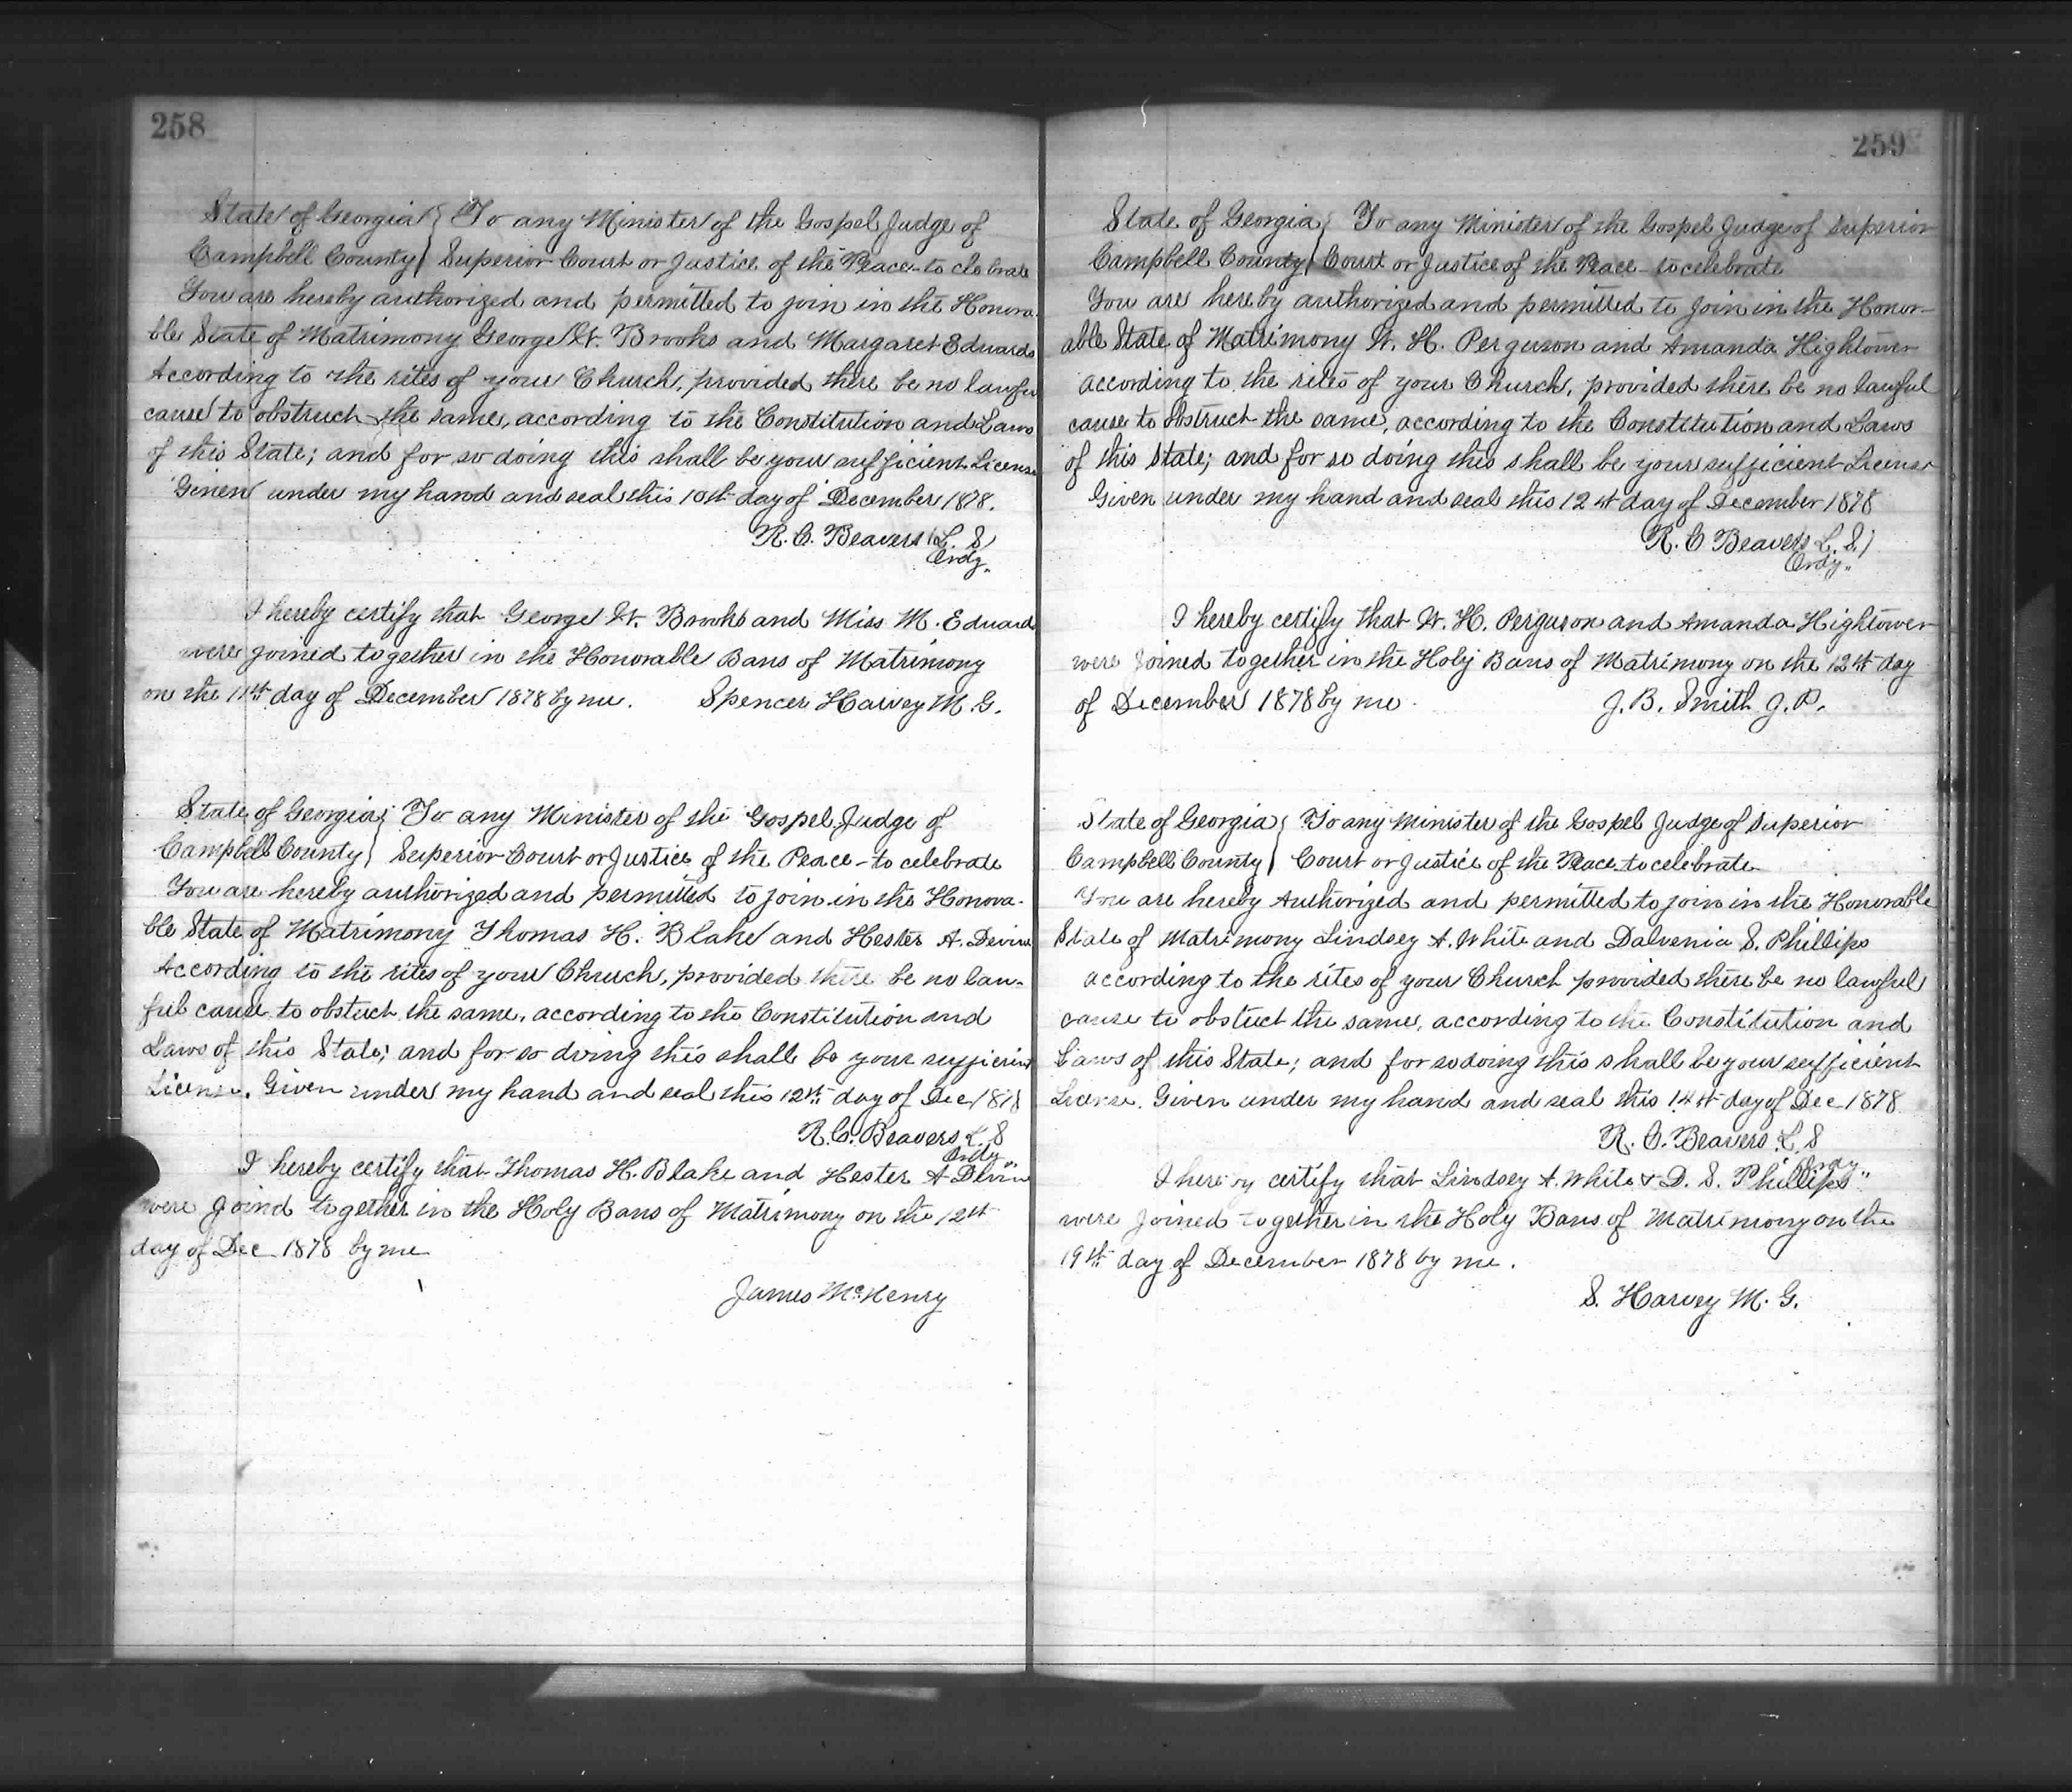 258
State of Georgia } To any Minister of the Gospel Judge of
Campbell County } Superior Court or Justice of the Peace to clebrate
You are hereby authorized and permitted to join in the Honora-
ble State of Matrimony George W. Brooks and Margaret Eduards
According to the rites of your Church, provided there be no lawful
cause to obstruch the same, according to the Constitution and Laws
of this State; and for so doing this shall be your sufficient License
Given under my hand and seal this 10th day of December 1878.
R. C. Beavers (L. S)
Ordy.
I hereby certify that George W. Brooks and Miss M. Eduard
were joined together in the Honorable Bans of Matrimony
on the 11th day of December 1878 by me. Spencer Harvey M. G.
State of Georgia } To any Minister of the Gospel Judge of
Campbell County } Superior Court or Justice of the Peace - to celebrate
You are hereby authorized and permitted to join in the Honora-
ble State of Matrimony Thomas H. Blake and Hester A. Devin
According to the rites of your Church, provided there be no law-
ful cause to obstuct the same, according to the Constitution and
Laws of this State; and for so doing this shall be your sufficient
License. Given under my hand and seal this 12th day of Dec 1878
R. C. Beavers L. S
Ordy
I hereby certify that Thomas H. Blake and Hester A Devin
were joind together in the Holy Bans of Matrimony on the 12th
day of Dec 1878 by me
James McHenry
259
State of Georgia } To any Minister of the Gospel Judge of Superior
Campbell County } Court or Justice of the Peace - to celebrate
You are hereby authorized and permitted to join in the Honor-
able State of Matrimony W. H. Perguson and Amanda Hightower
according to the rites of your Church, provided there be no lawful
cause to obstruct the same, according to the Constitution and Laws
of this State; and for so doing this shall be your sufficient License
Given under my hand and seal this 12th day of December 1878
R. C Beavers L. S.)
Ordy.
I hereby certify that W. H. Perguson and Amanda Hightower
were joined together in the Holy Bans of Matrimony on the 12th day
of December 1878 by me. J. B. Smith J. P.
State of Georgia } To any Minister of the Gospel Judge of Superior
Campbell County } Court or Justice of the Peace to celebrate
You are hereby Authorized and permitted to join in the Honorable
State of Matrimony Lindsey A. White and Dalvenia S. Phillips
according to the rites of your Church provided there be no lawful
cause to obstuct the same, according to the Constitution and
Laws of this State; and for so doing this shall be your sufficient
License. Given under my hand and seal this 14th day of Dec 1878
R. C. Beavers L. S
Ordy.
I hereby certify that Lindsey A. White & D. S. Phillips
were joined together in the Holy Bans of Matrimony on the
19th day of December 1878 by me.
S. Harvey M. G.